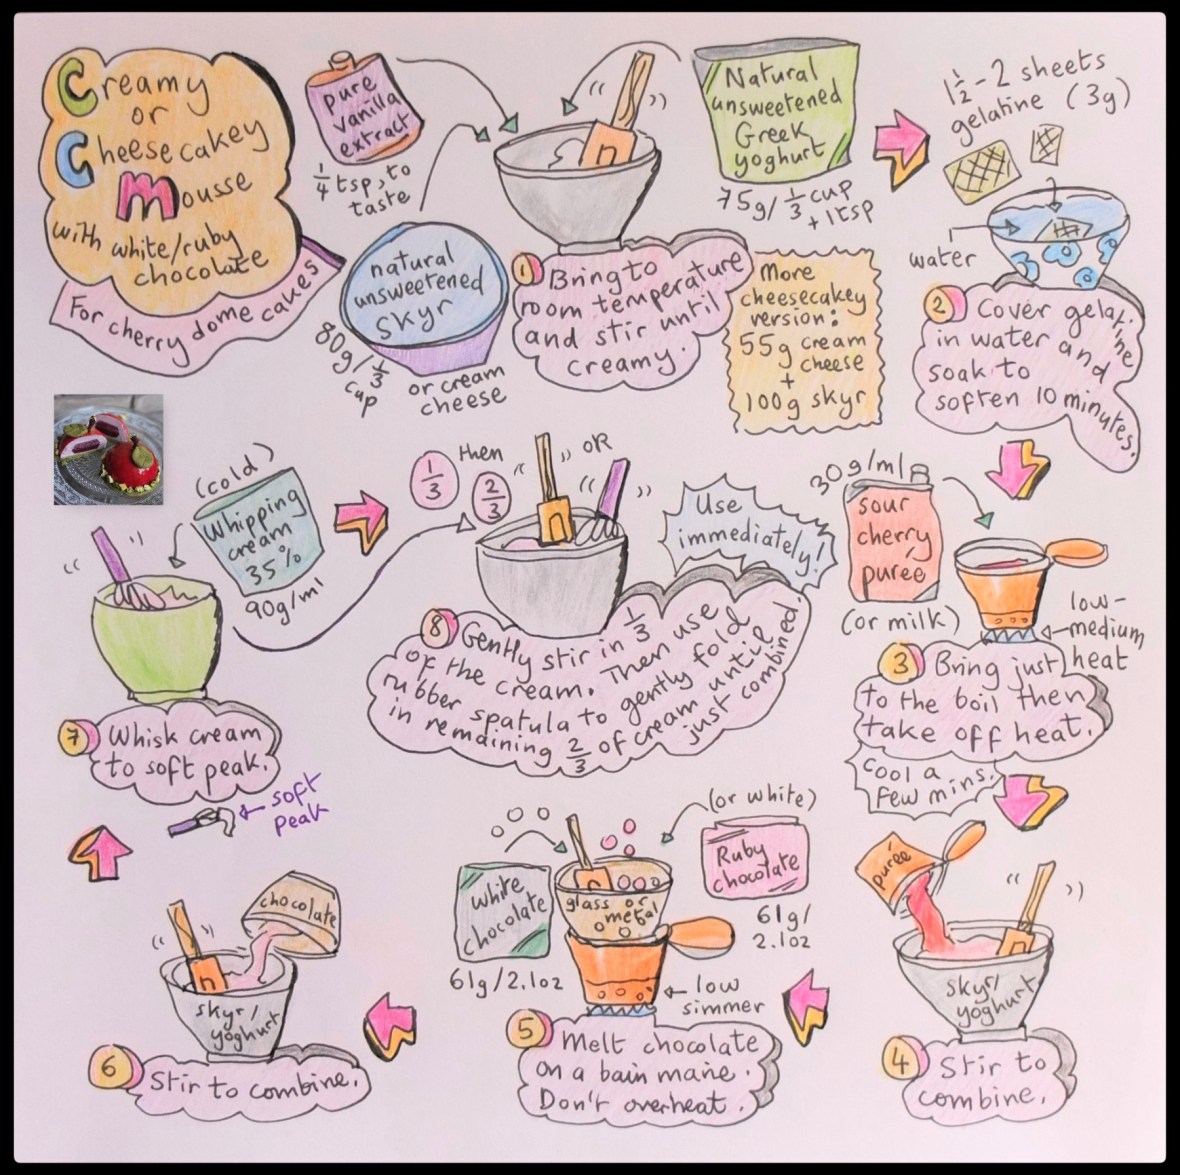 Creamy
or
Cheesecakey
Mousse
with white/ruby
chocolate
For cherry dome cakes
pure
vanilla
extract
1/4 tsp, to
taste
natural
unsweetened
skyr
80g/ 1/3
cup
or cream
cheese
Natural
unsweetened
Greek
yoghurt
75g/ 1/3 cup
+ 1tsp
1 Bring to
room temperature
and stir until
creamy.
More
cheesecakey
version:
55g cream
cheese
+
100g skyr
1 1/2 - 2 sheets
gelatine (3g)
water
2 Cover gelatine
in water and
soak to
soften 10 minutes.
30g/ml
sour
cherry
purée
(or milk)
low-
medium
heat
3 Bring just
to the boil then
take off heat.
Cool a
few mins.
purée
skyr/
yoghurt
4 Stir to
combine.
(or white)
Ruby
chocolate
61g/
2.1oz
white
chocolate
61g/2.1oz
glass or
metal
low
simmer
5 Melt chocolate
on a bain marie.
Don't overheat.
chocolate
skyr/
yoghurt
6 Stir to combine.
(cold)
Whipping
cream
35%
90g/ml
7 Whisk cream
to soft peak.
soft
peak
1/3 then 2/3
OR
Use
immediately!
8 Gently stir in 1/3
of the cream. Then use
rubber spatula to gently fold
in remaining 2/3 of cream until
just combined.